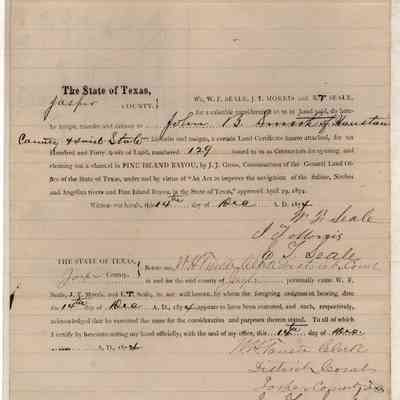 The State of Texas,
Jasper COUNTY.
We, W. F. SEALE, J. T. MORRIS and E. T. SEALE,
for a valuable consideration to us in hand paid, do here-
by assign, transfer and convey to John B. Smith of Houston
County & said State his heirs and assigns, a certain Land Certificate hereto attached, for six
Hundred and Forty Acres of Land, numbered 129 issued to us as Contractors for opening and
cleaning out a channel in PINE ISLAND BAYOU, by J. J. Groos, Commissioner of the General Land Of-
fice of the State of Texas, under and by virtue of "An Act to improve the navigation of the Sabine, Neches
and Angelina rivers and Pine Island Bayou, in the State of Texas," approved April 29, 1874.
Witness our hands, this 14th day of Dec A. D. 1874
W. F. Seale
J. T. Morris
E. T. Seale
THE STATE OF TEXAS,
Jasper County.
BEFORE ME, Clerk District Court
in and for the said county of Jasper personally came W. F.
Seale, J. T. Morris, and E. T. Seale, to me well known, by whom the foregoing assignment bearing date
the 14th day of Dec A. D., 1874 appears to have been executed, and each, respectively,
acknowledged that he executed the same for the consideration and purposes therein stated. To all of which
I certify by hereunto setting my hand officially, with the seal of my office, this 14th day of Dec
A. D. 1874
Clerk
District Court
Jasper County